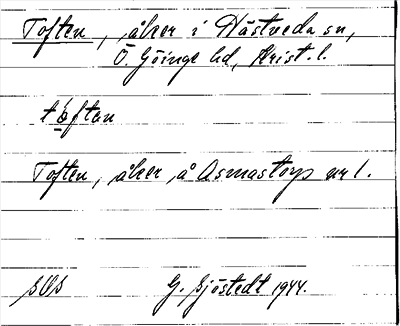 Toften, åker i Nästveda sn,
Ö. Göinge hd, Krist. l.
tåftan
Toften, åker, å Asmastorp nr 1.
SOS G. Sjöstedt 1944.